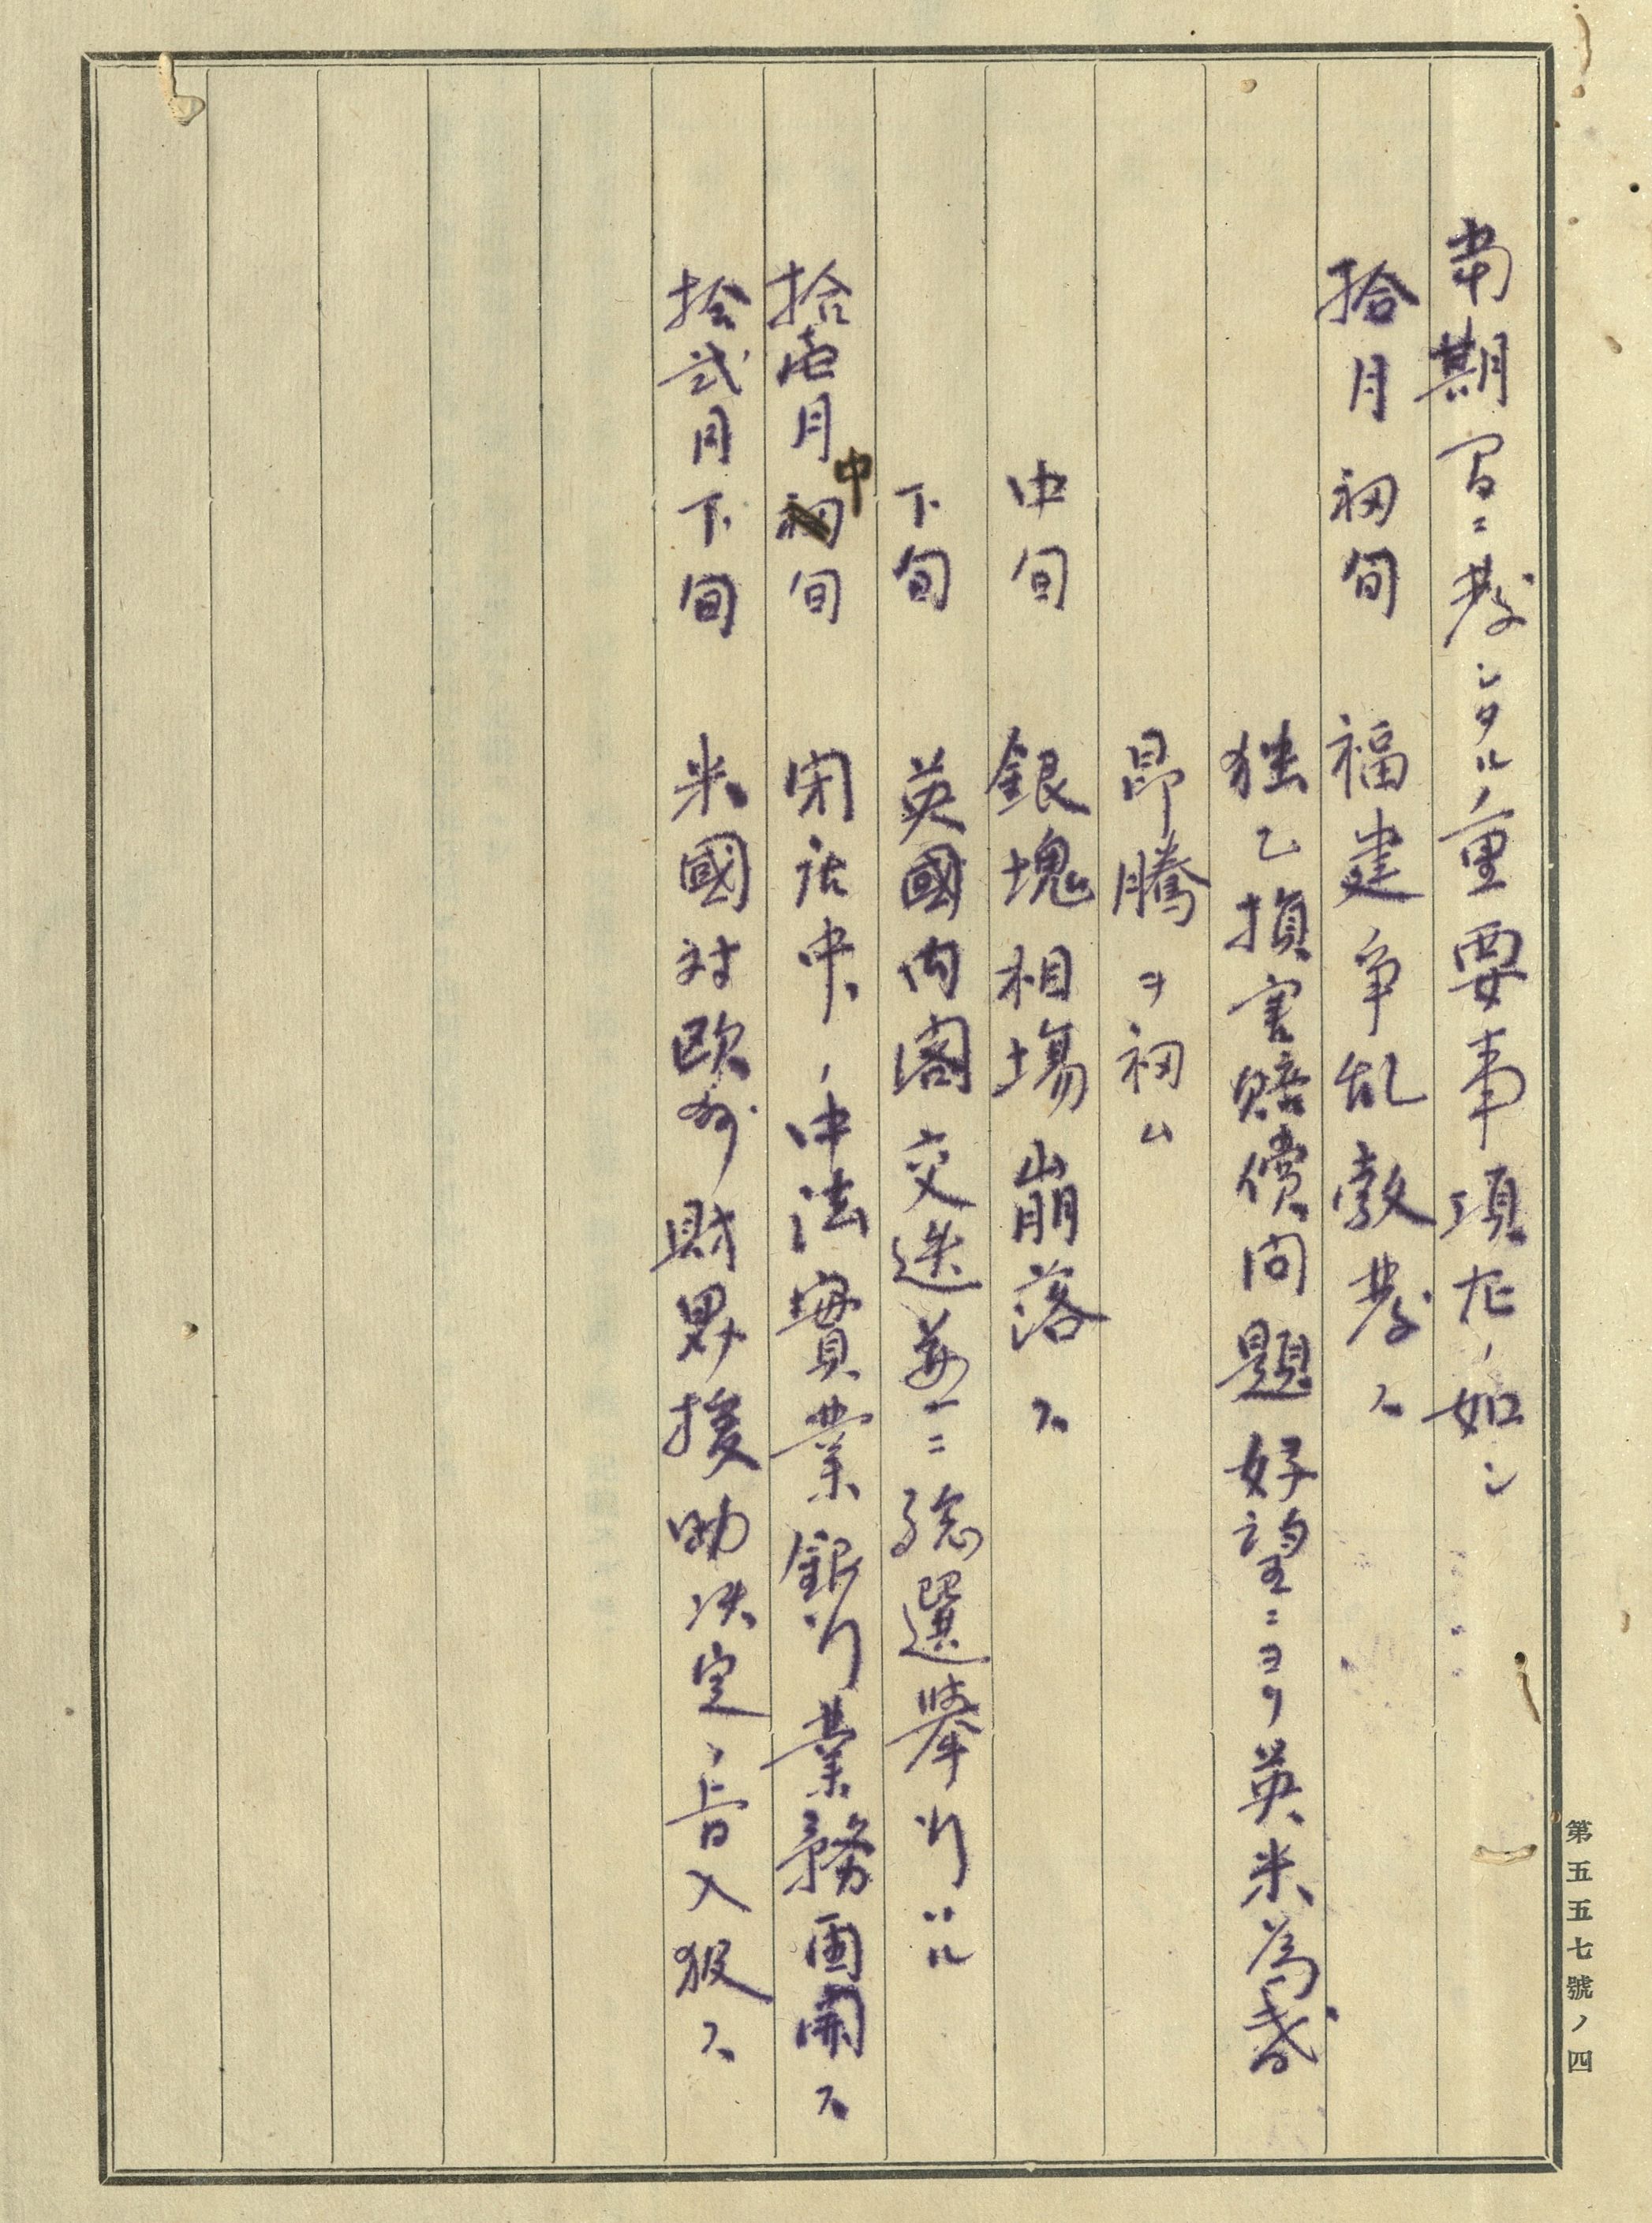 当期間ニ発シタル重要事項左ノ如シ
拾月初旬 福建争乱勃発ス
独乙損害賠償問題好望ニヨリ英米為替
昂騰ヲ初ム
中旬 銀塊相場崩落ス
下旬 英國内閣交迭並ニ総選挙行ハル
拾壱月中旬 閉店中ノ中法實業銀行業務再開ス
拾弐月下旬 米國対欧州財界援助决定ノ旨入報ス
第五五七號ノ四